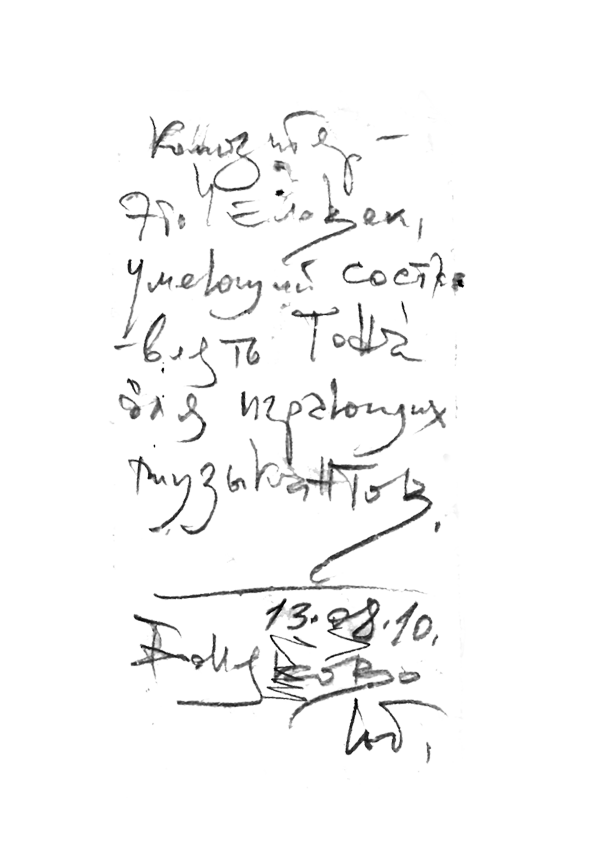 Композитор –
это человек,
умеющий соста-
-влять тона
для играющих
музыкантов.
13.08.10.